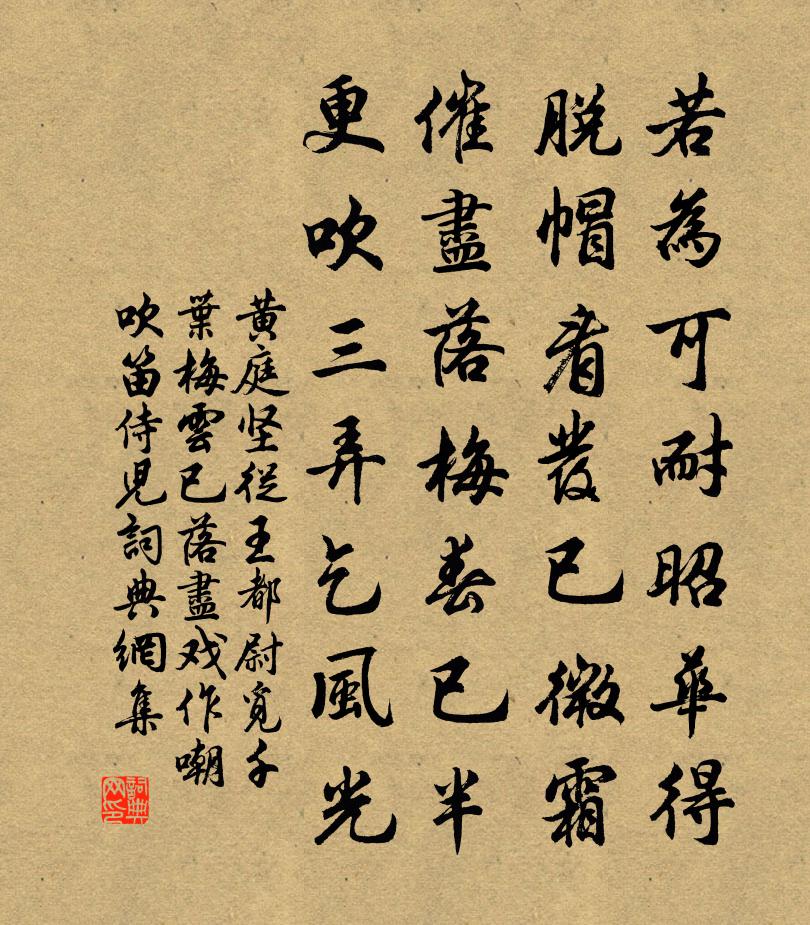 若為可耐昭華得
脫帽看發已微霜
催盡落梅春已半
更吹三弄乞風光
黃庭坚從王都尉覓千
葉梅雲已落盡戏作嘲
吹笛侍児詞典網集
詞典
网印